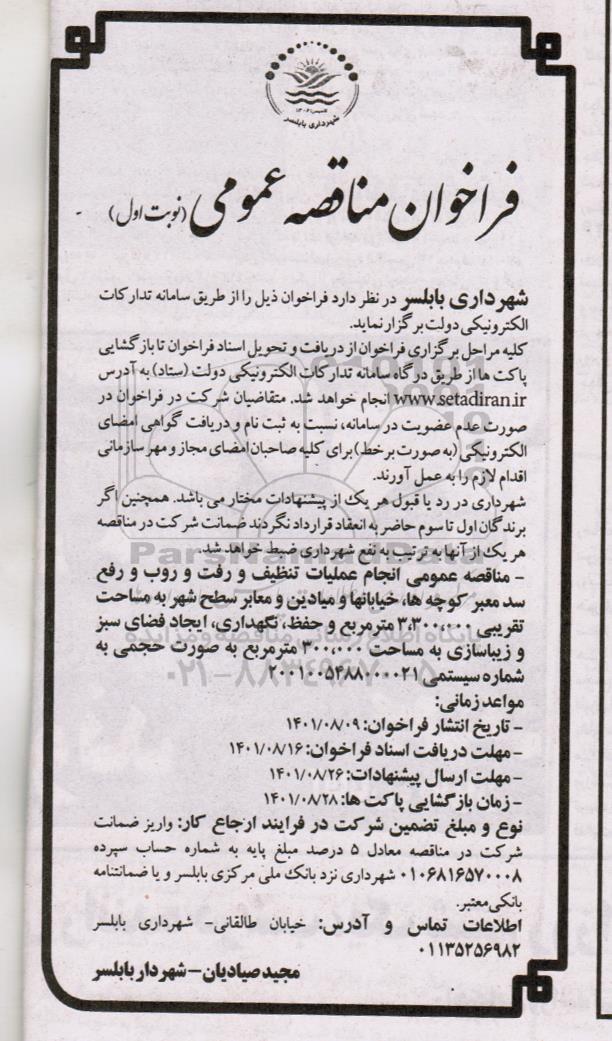 تاسیس ۱۳۰۶
شهرداری بابلسر
فراخوان مناقصه عمومی (نوبت اول)
شهرداری بابلسر در نظر دارد فراخوان ذیل را از طریق سامانه تدارکات
الکترونیکی دولت برگزار نماید.
کلیه مراحل برگزاری فراخوان از دریافت و تحویل اسناد فراخوان تا بازگشایی
پاکت ها از طریق درگاه سامانه تدارکات الکترونیکی دولت (ستاد) به آدرس
www.setadiran.ir انجام خواهد شد. متقاضیان شرکت در فراخوان در
صورت عدم عضویت در سامانه، نسبت به ثبت نام و دریافت گواهی امضای
الکترونیکی (به صورت بر خط) برای کلیه صاحبان امضای مجاز و مهر سازمانی
اقدام لازم را به عمل آورند.
شهرداری در رد یا قبول هر یک از پیشنهادات مختار می باشد. همچنین اگر
برندگان اول تا سوم حاضر به انعقاد قرارداد نگردند ضمانت شرکت در مناقصه
هر یک از آنها به ترتیب به نفع شهرداری ضبط خواهد شد.
ParsNamadData
- مناقصه عمومی انجام عملیات تنظیف و رفت و روب و رفع
سد معبر کوچه ها، خیابانها و میادین و معابر سطح شهر به مساحت
تقریبی ۳،۳۰۰،۰۰۰ مترمربع و حفظ، نگهداری، ایجاد فضای سبز
و زیباسازی به مساحت ۳۰۰،۰۰۰ مترمربع به صورت حجمی به
شماره سیستمی ۲۰۰۱۰۰۵۴۸۸۰۰۰۰۲۱
۰۲۱-۸۸۳۴۹۶۷۰-۵
مواعد زمانی:
- تاریخ انتشار فراخوان: ۱۴۰۱/۰۸/۰۹
- مهلت دریافت اسناد فراخوان: ۱۴۰۱/۰۸/۱۶
- مهلت ارسال پیشنهادات: ۱۴۰۱/۰۸/۲۶
- زمان بازگشایی پاکت ها: ۱۴۰۱/۰۸/۲۸
نوع و مبلغ تضمین شرکت در فرایند ارجاع کار: واریز ضمانت
شرکت در مناقصه معادل ۵ درصد مبلغ پایه به شماره حساب سپرده
۰۱۰۶۸۱۶۵۷۰۰۰۸ شهرداری نزد بانک ملی مرکزی بابلسر و یا ضمانتنامه
بانکی معتبر.
اطلاعات تماس و آدرس: خیابان طالقانی- شهرداری بابلسر
۰۱۱۳۵۲۵۶۹۸۲
مجید صیادیان - شهردار بابلسر